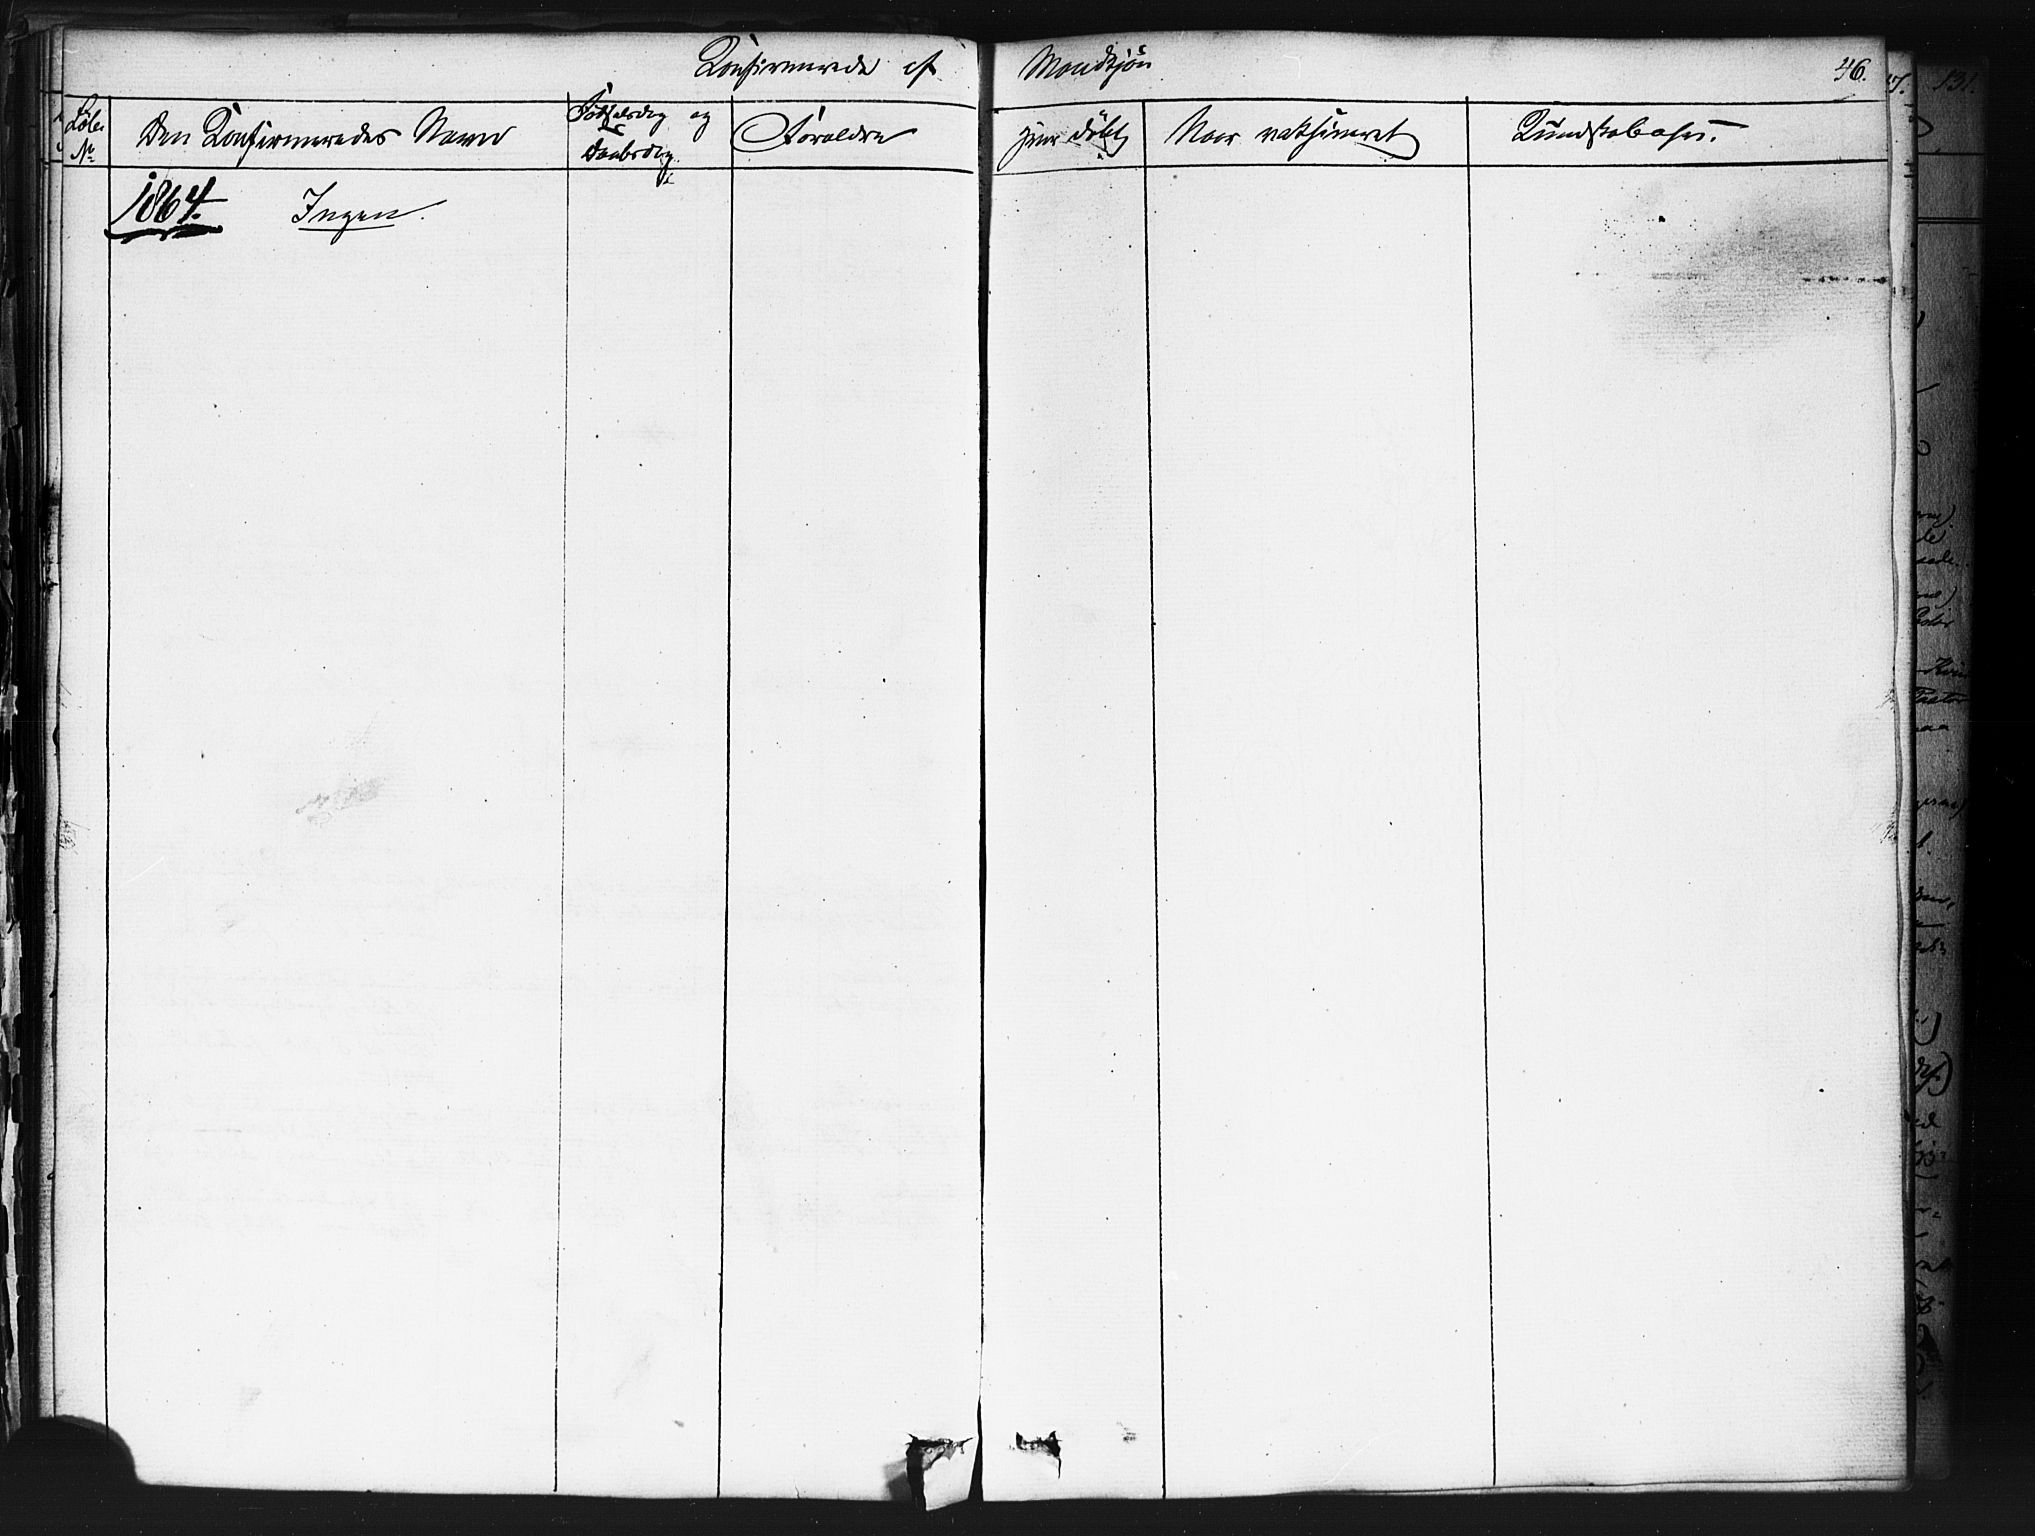 Konfirmerede af Mandkjön
46.
Löbe
No
Den Konfirmeredes Navn
Födselsdag og
Daabsdag
Foreldre
hvor döbt
Naar vaksineret
Kundskaber
1864. Ingen.
131.